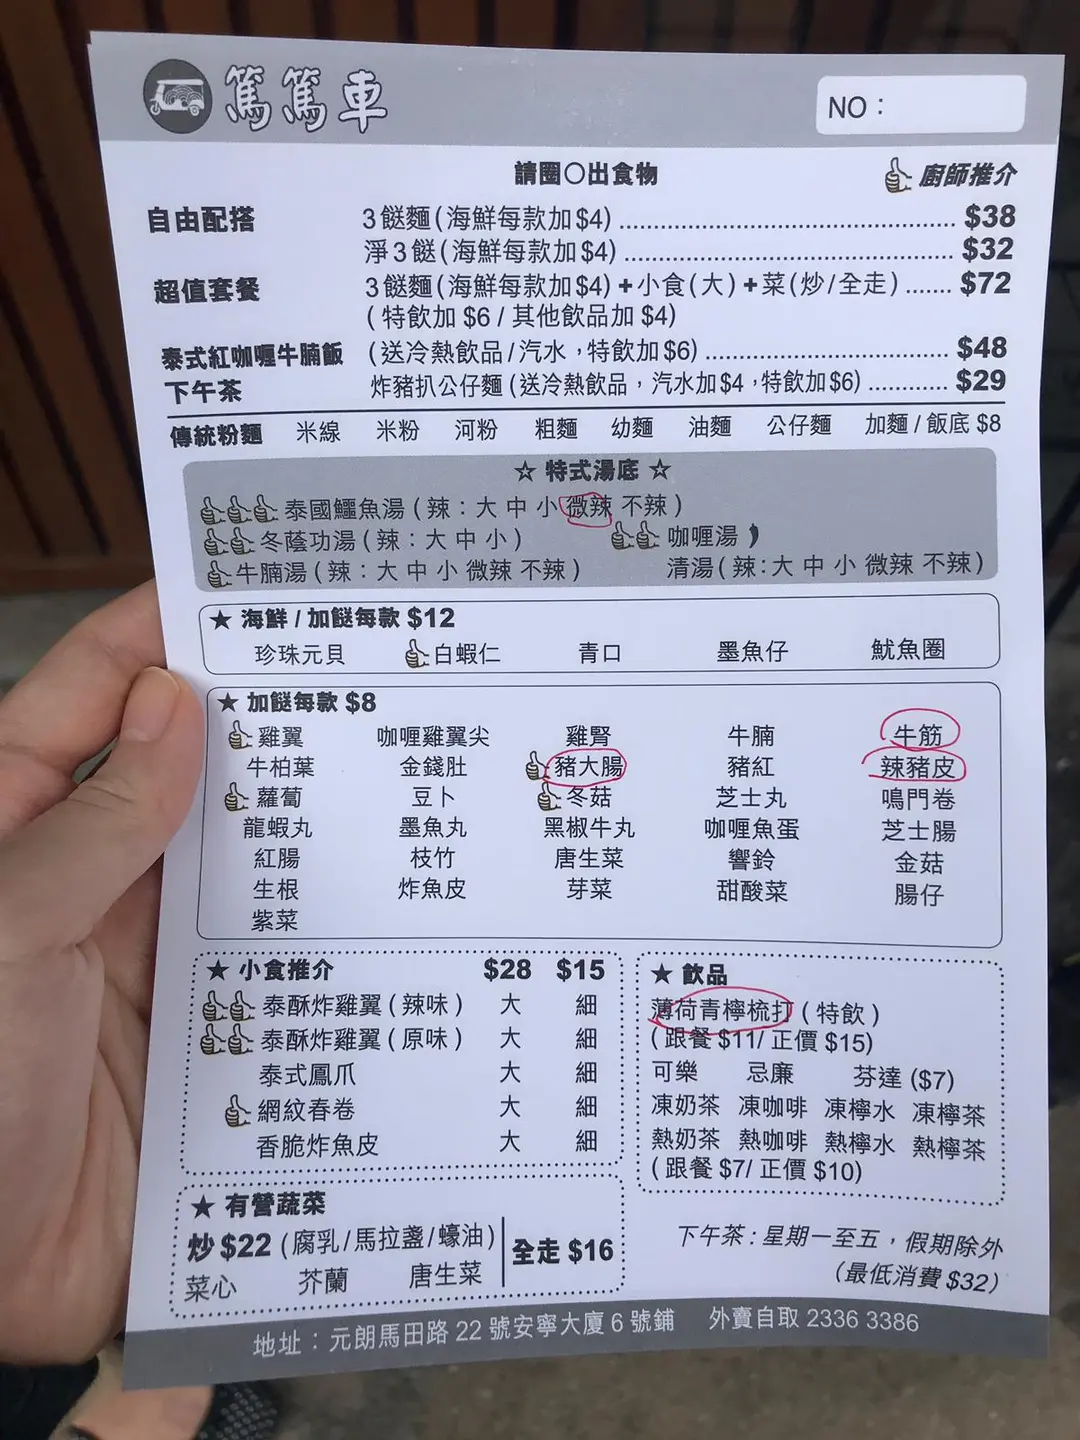 篤篤車
NO：
請圈○出食物
廚師推介
自由配搭 3餸麵(海鮮每款加$4) $38
淨3餸(海鮮每款加$4) $32
超值套餐 3餸麵(海鮮每款加$4)+小食(大)+菜(炒/全走) $72
(特飲加$6/其他飲品加$4)
泰式紅咖喱牛腩飯 (送冷熱飲品/汽水，特飲加$6) $48
下午茶 炸豬扒公仔麵(送冷熱飲品，汽水加$4，特飲加$6) $29
傳統粉麵 米線 米粉 河粉 粗麵 幼麵 油麵 公仔麵 加麵/飯底 $8
☆ 特式湯底 ☆
泰國鱷魚湯(辣：大 中 小 微辣 不辣)
冬蔭功湯(辣：大 中 小) 咖喱湯
牛腩湯(辣：大 中 小 微辣 不辣) 清湯(辣：大 中 小 微辣 不辣)
★ 海鮮/加餸每款 $12
珍珠元貝 白蝦仁 青口 墨魚仔 魷魚圈
★ 加餸每款 $8
雞翼 咖喱雞翼尖 雞腎 牛腩 牛筋
牛柏葉 金錢肚 豬大腸 豬紅 辣豬皮
蘿蔔 豆卜 冬菇 芝士丸 鳴門卷
龍蝦丸 墨魚丸 黑椒牛丸 咖喱魚蛋 芝士腸
紅腸 枝竹 唐生菜 響鈴 金菇
生根 炸魚皮 芽菜 甜酸菜 腸仔
紫菜
★ 小食推介 $28 $15
泰酥炸雞翼(辣味) 大 細
泰酥炸雞翼(原味) 大 細
泰式鳳爪 大 細
網紋春卷 大 細
香脆炸魚皮 大 細
★ 飲品
薄荷青檸梳打(特飲)
(跟餐 $11/ 正價 $15)
可樂 忌廉 芬達 ($7)
凍奶茶 凍咖啡 凍檸水 凍檸茶
熱奶茶 熱咖啡 熱檸水 熱檸茶
(跟餐 $7/ 正價 $10)
★ 有營蔬菜
炒 $22 (腐乳/馬拉盞/蠔油) 全走 $16
菜心 芥蘭 唐生菜
下午茶：星期一至五，假期除外
(最低消費 $32)
地址：元朗馬田路 22 號安寧大廈 6 號鋪 外賣自取 2336 3386